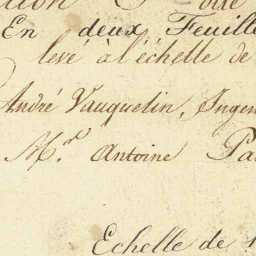 En deux Feuille
levé à l'échelle de
André Vauquelin, Ingen
M.r Antoine Pa
Echelle de 1